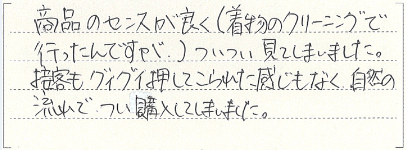 商品のセンスが良く(着物のクリーニングで
行ったんですが.)ついつい見てしまいました。
接客もグイグイ押してこられた感じもなく自然の
流れで つい購入してしまいました。